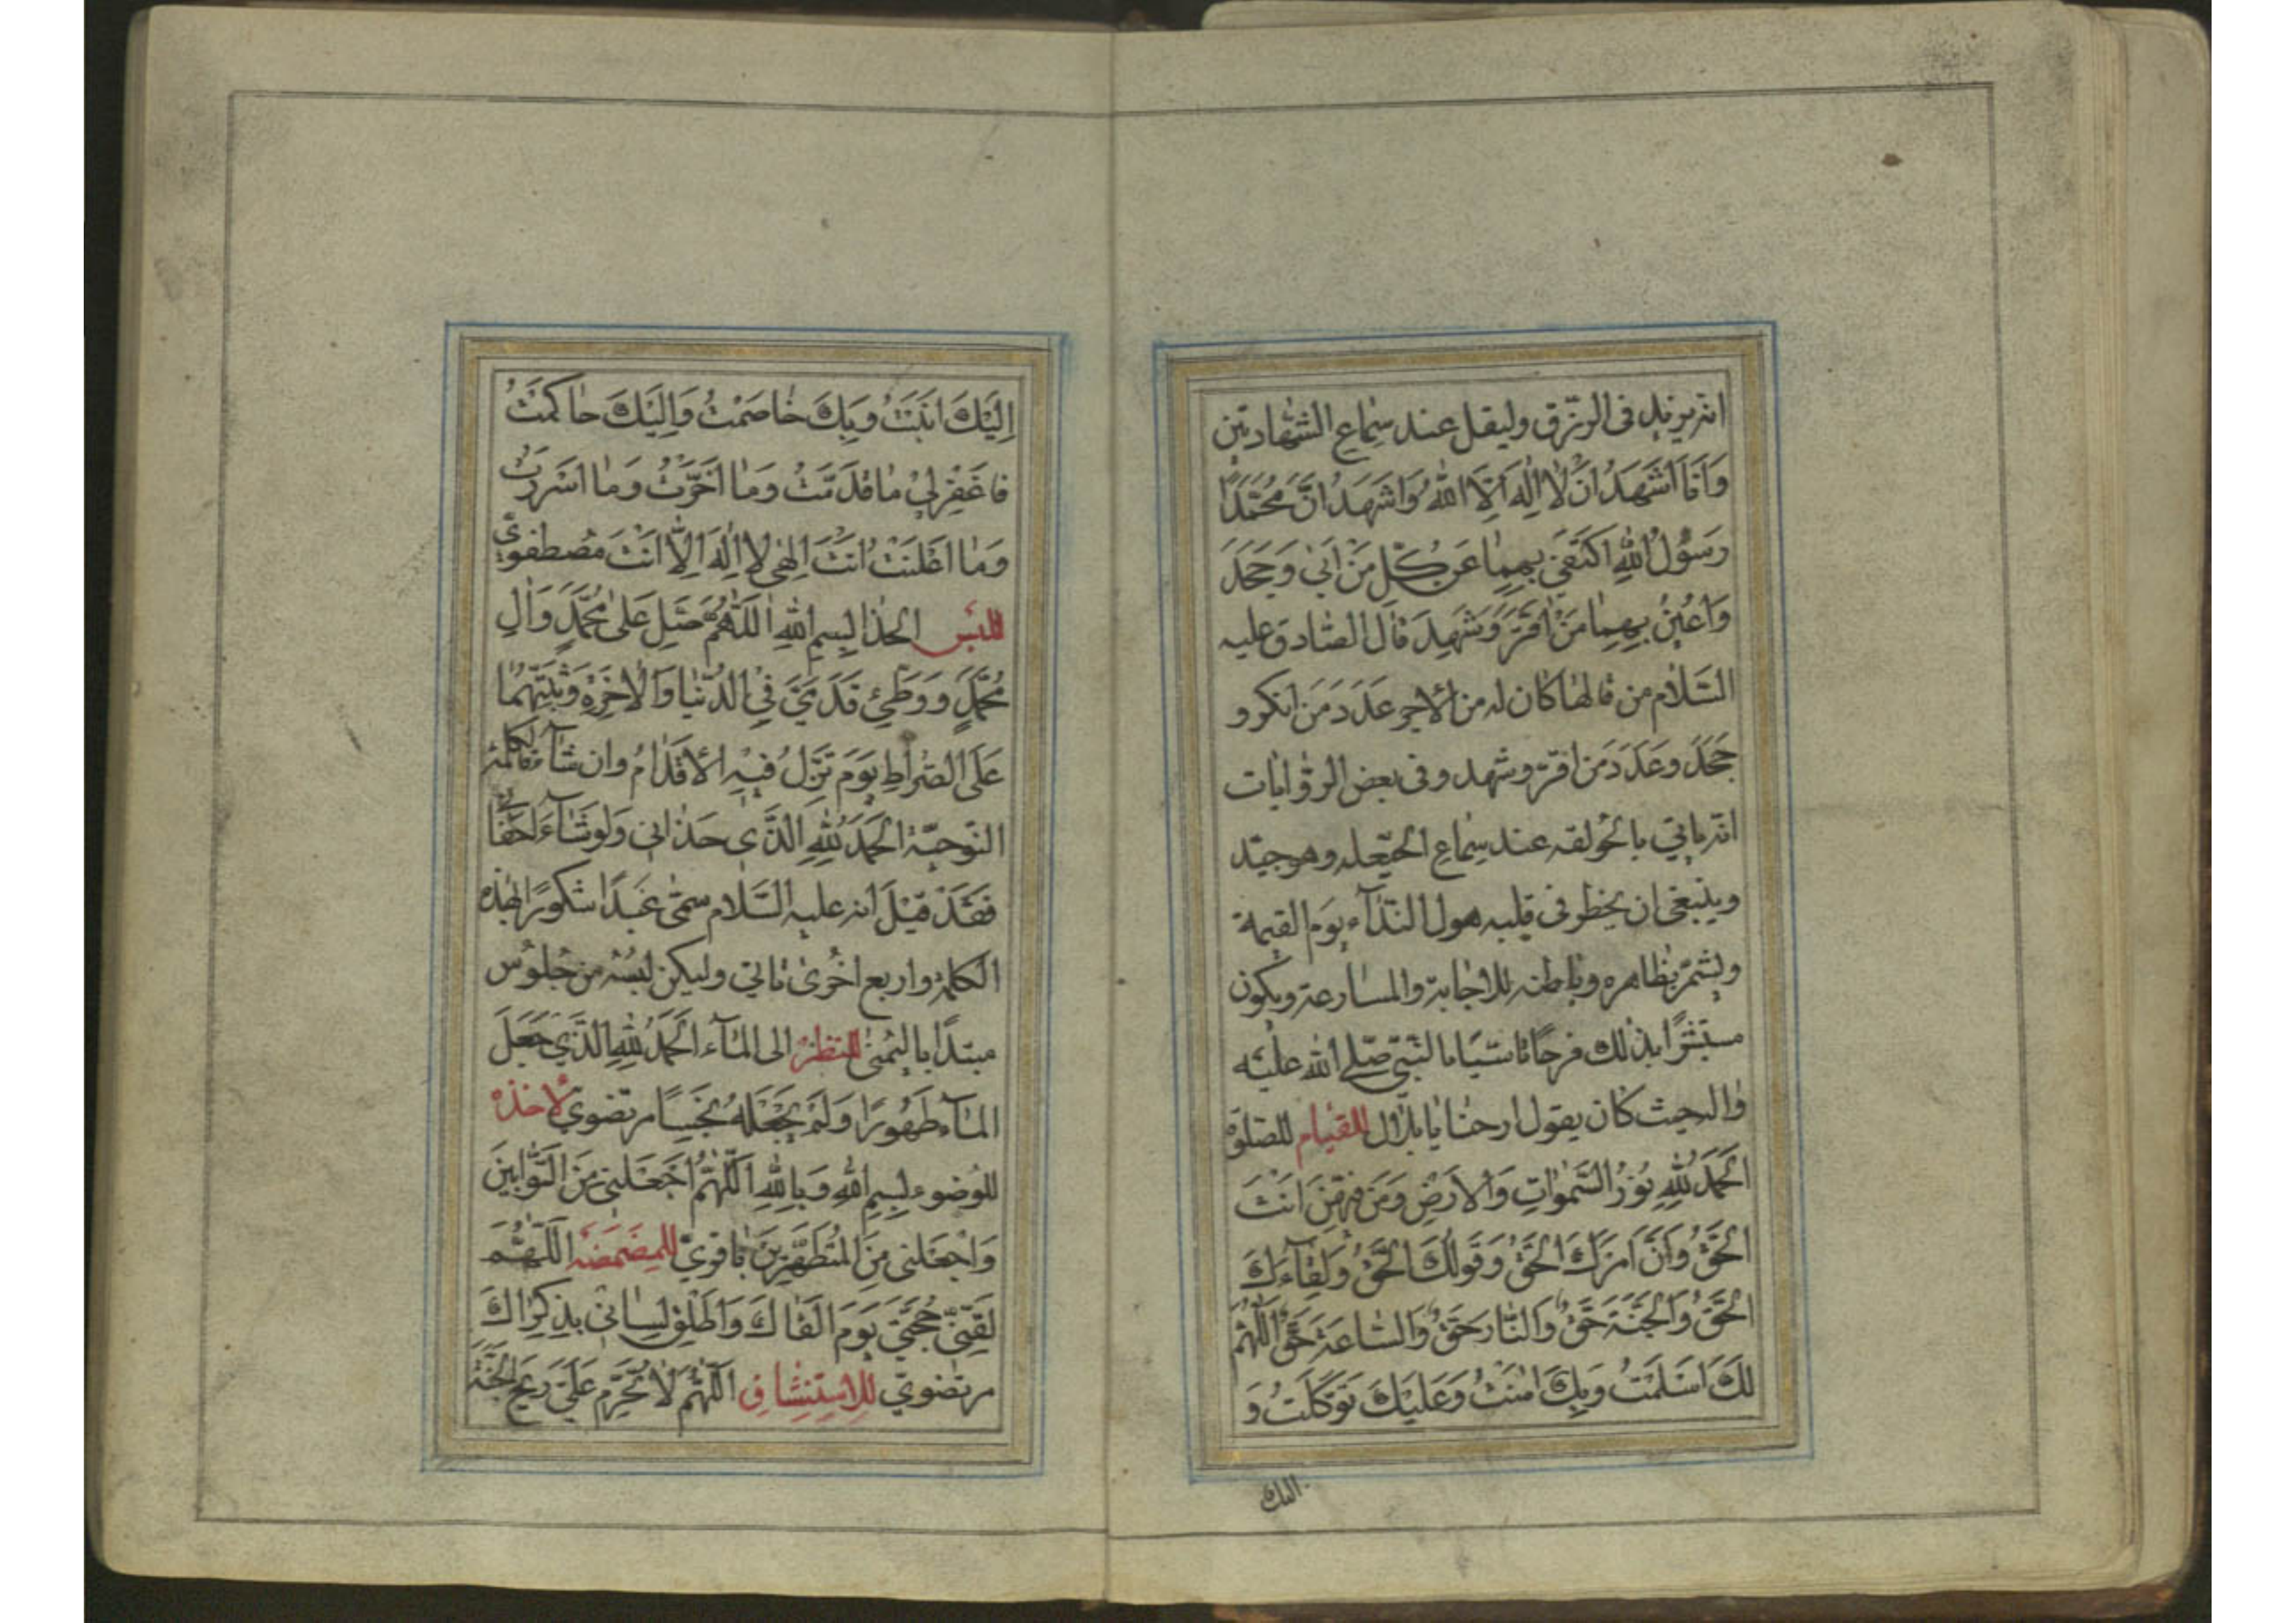 انه يزيد فى الرزق وليقل عند سماع الشهادتين
وَاَنَا اَشْهَدُ اَنْ لَا اِلٰهَ اِلَّا اللّٰهُ وَاَشْهَدُ اَنَّ مُحَمَّدًا
رَسُولُ اللّٰهِ اَكْتَفِي بِهِمَا عَنْ كُلِّ مَنْ اَبٰى وَجَحَدَ
وَاُعِينُ بِهِمَا مَنْ اَقَرَّ وَشَهِدَ قال الصّادق عليه
السّلام من قالها كان له من الاجر عدد من انكر و
جحد وعدد من اقرّ وشهد وفى بعض الرّوايات
انّه ياتي بالحولقه عند سماع الحيّعله وهو جيّد
وينبغى ان يخطر فى قلبه هول النّدآء يوم القيمة
ويشمّر بظاهره وباطنه للاجابة والمسارعة ويكون
مستبشرًا بذلك فرحًا تاسّيًا بالنّبيّ صلّى اللّٰه عليه
واله حيث كان يقول ارحنا يا بلال للقيام للصّلوة
اَلْحَمْدُ لِلّٰهِ نُورُ السَّمٰوَاتِ وَالْاَرْضِ وَمَنْ فِيهِنَّ اَنْتَ
الْحَقُّ وَاَنَّ اَمْرَكَ الْحَقُّ وَقَوْلُكَ الْحَقُّ وَلِقَآءَكَ
الْحَقُّ وَالْجَنَّةَ حَقٌّ وَالنَّارَ حَقٌّ وَالسَّاعَةَ حَقٌّ اَللّٰهُمَّ
لَكَ اَسْلَمْتُ وَبِكَ اٰمَنْتُ وَعَلَيْكَ تَوَكَّلْتُ وَ
اليك
اِلَيْكَ اَنَبْتُ وَبِكَ خَاصَمْتُ وَاِلَيْكَ حَاكَمْتُ
فَاغْفِرْ لِي مَا قَدَّمْتُ وَمَا اَخَّرْتُ وَمَا اَسْرَرْتُ
وَمَا اَعْلَنْتُ اَنْتَ اِلٰهِي لَا اِلٰهَ اِلَّا اَنْتَ مصطفويّ
للبس الحذا بِسْمِ اللّٰهِ اَللّٰهُمَّ صَلِّ عَلٰى مُحَمَّدٍ وَاٰلِ
مُحَمَّدٍ وَوَطِّئْ قَدَمَيَّ فِي الدُّنْيَا وَالْاٰخِرَةِ وَثَبِّتْهُمَا
عَلَى الصِّرَاطِ يَوْمَ تَزِلُّ فِيهِ الْاَقْدَامُ وان شآء فالكلمة
النّوحيّة اَلْحَمْدُ لِلّٰهِ الَّذِي حَذَانِي وَلَوْ شَآءَ لَاَحْفَانِي
فقد قيل انه عليه السّلام سمّى عبدًا شكورًا لهذه
الكلمة واربع اخرى تاتي وليكن لبسه من جلوس
مبتدًا باليمنى للنظر الى المآء اَلْحَمْدُ لِلّٰهِ الَّذِي جَعَلَ
الْمَآءَ طَهُورًا وَلَمْ يَجْعَلْهُ نَجِسًا مرتضوي لاخذه
للوضوء بِسْمِ اللّٰهِ وَبِاللّٰهِ اَللّٰهُمَّ اجْعَلْنِي مِنَ التَّوَّابِينَ
وَاجْعَلْنِي مِنَ الْمُتَطَهِّرِينَ باقريّ للمضمضه اَللّٰهُمَّ
لَقِّنِّي حُجَّتِي يَوْمَ اَلْقَاكَ وَاَطْلِقْ لِسَانِي بِذِكْرَاكَ
مرتضويّ للاستنشاق اَللّٰهُمَّ لَا تُحَرِّمْ عَلَيَّ رِيحَ الْجَنَّةِ